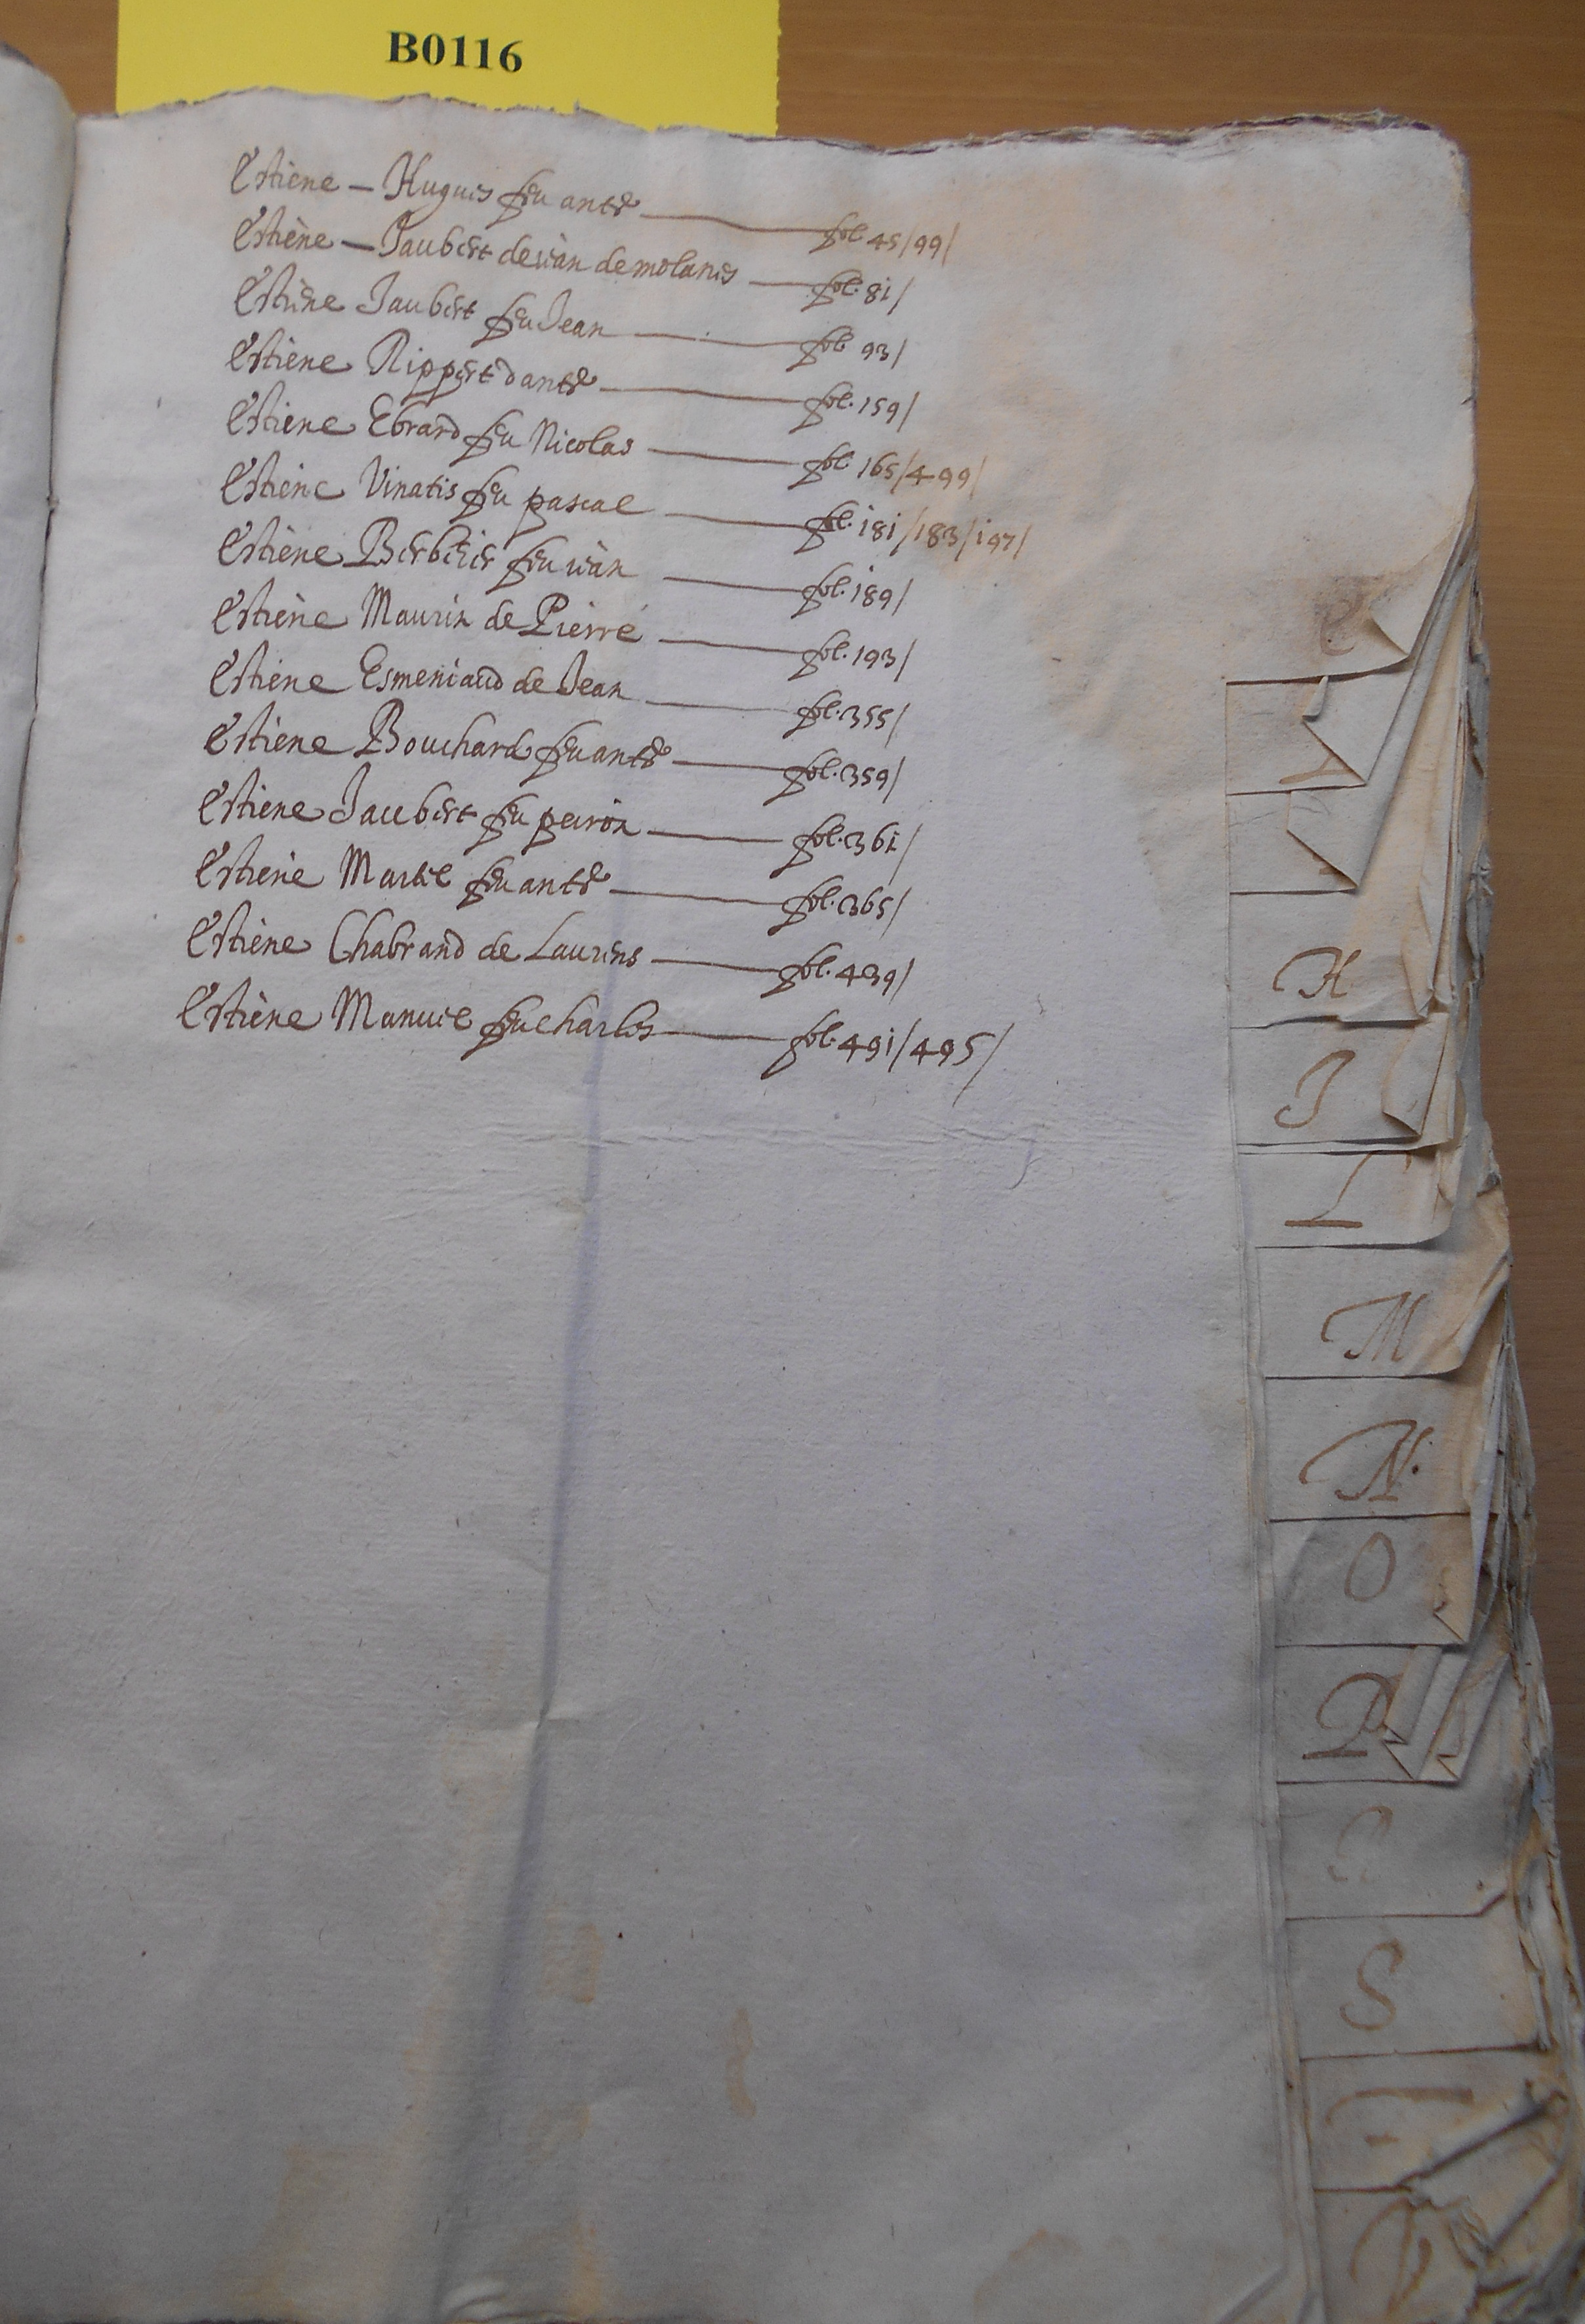 B0116
Estiene - Hugues feu ante fol 45/99/
Estiène - Jaubert de uian de molanes fol. 81/
Estiène Jaubert feu Jean fol 93/
Estiène Rippert dante fol. 159/
Estiene Ebrard feu Nicolas fol 165/499/
Estiene Vinatis feu pascal fol. 181/183/197/
Estiène Berbeier feu uian fol. 189/
Estiène Maurin de Pierre fol. 193/
Estiène Esmeniaud de Jean fol. 355/
Estiène Bouchard feu ante fol. 359/
Estiene Jaubert feu peiron fol. 361/
Estiene Martel feu ante fol. 365/
Estiène Chabrand de Laurens fol. 439/
Estiène Manuel feu charles fol. 491/495/
H
J
L
M
N.
O
P
S